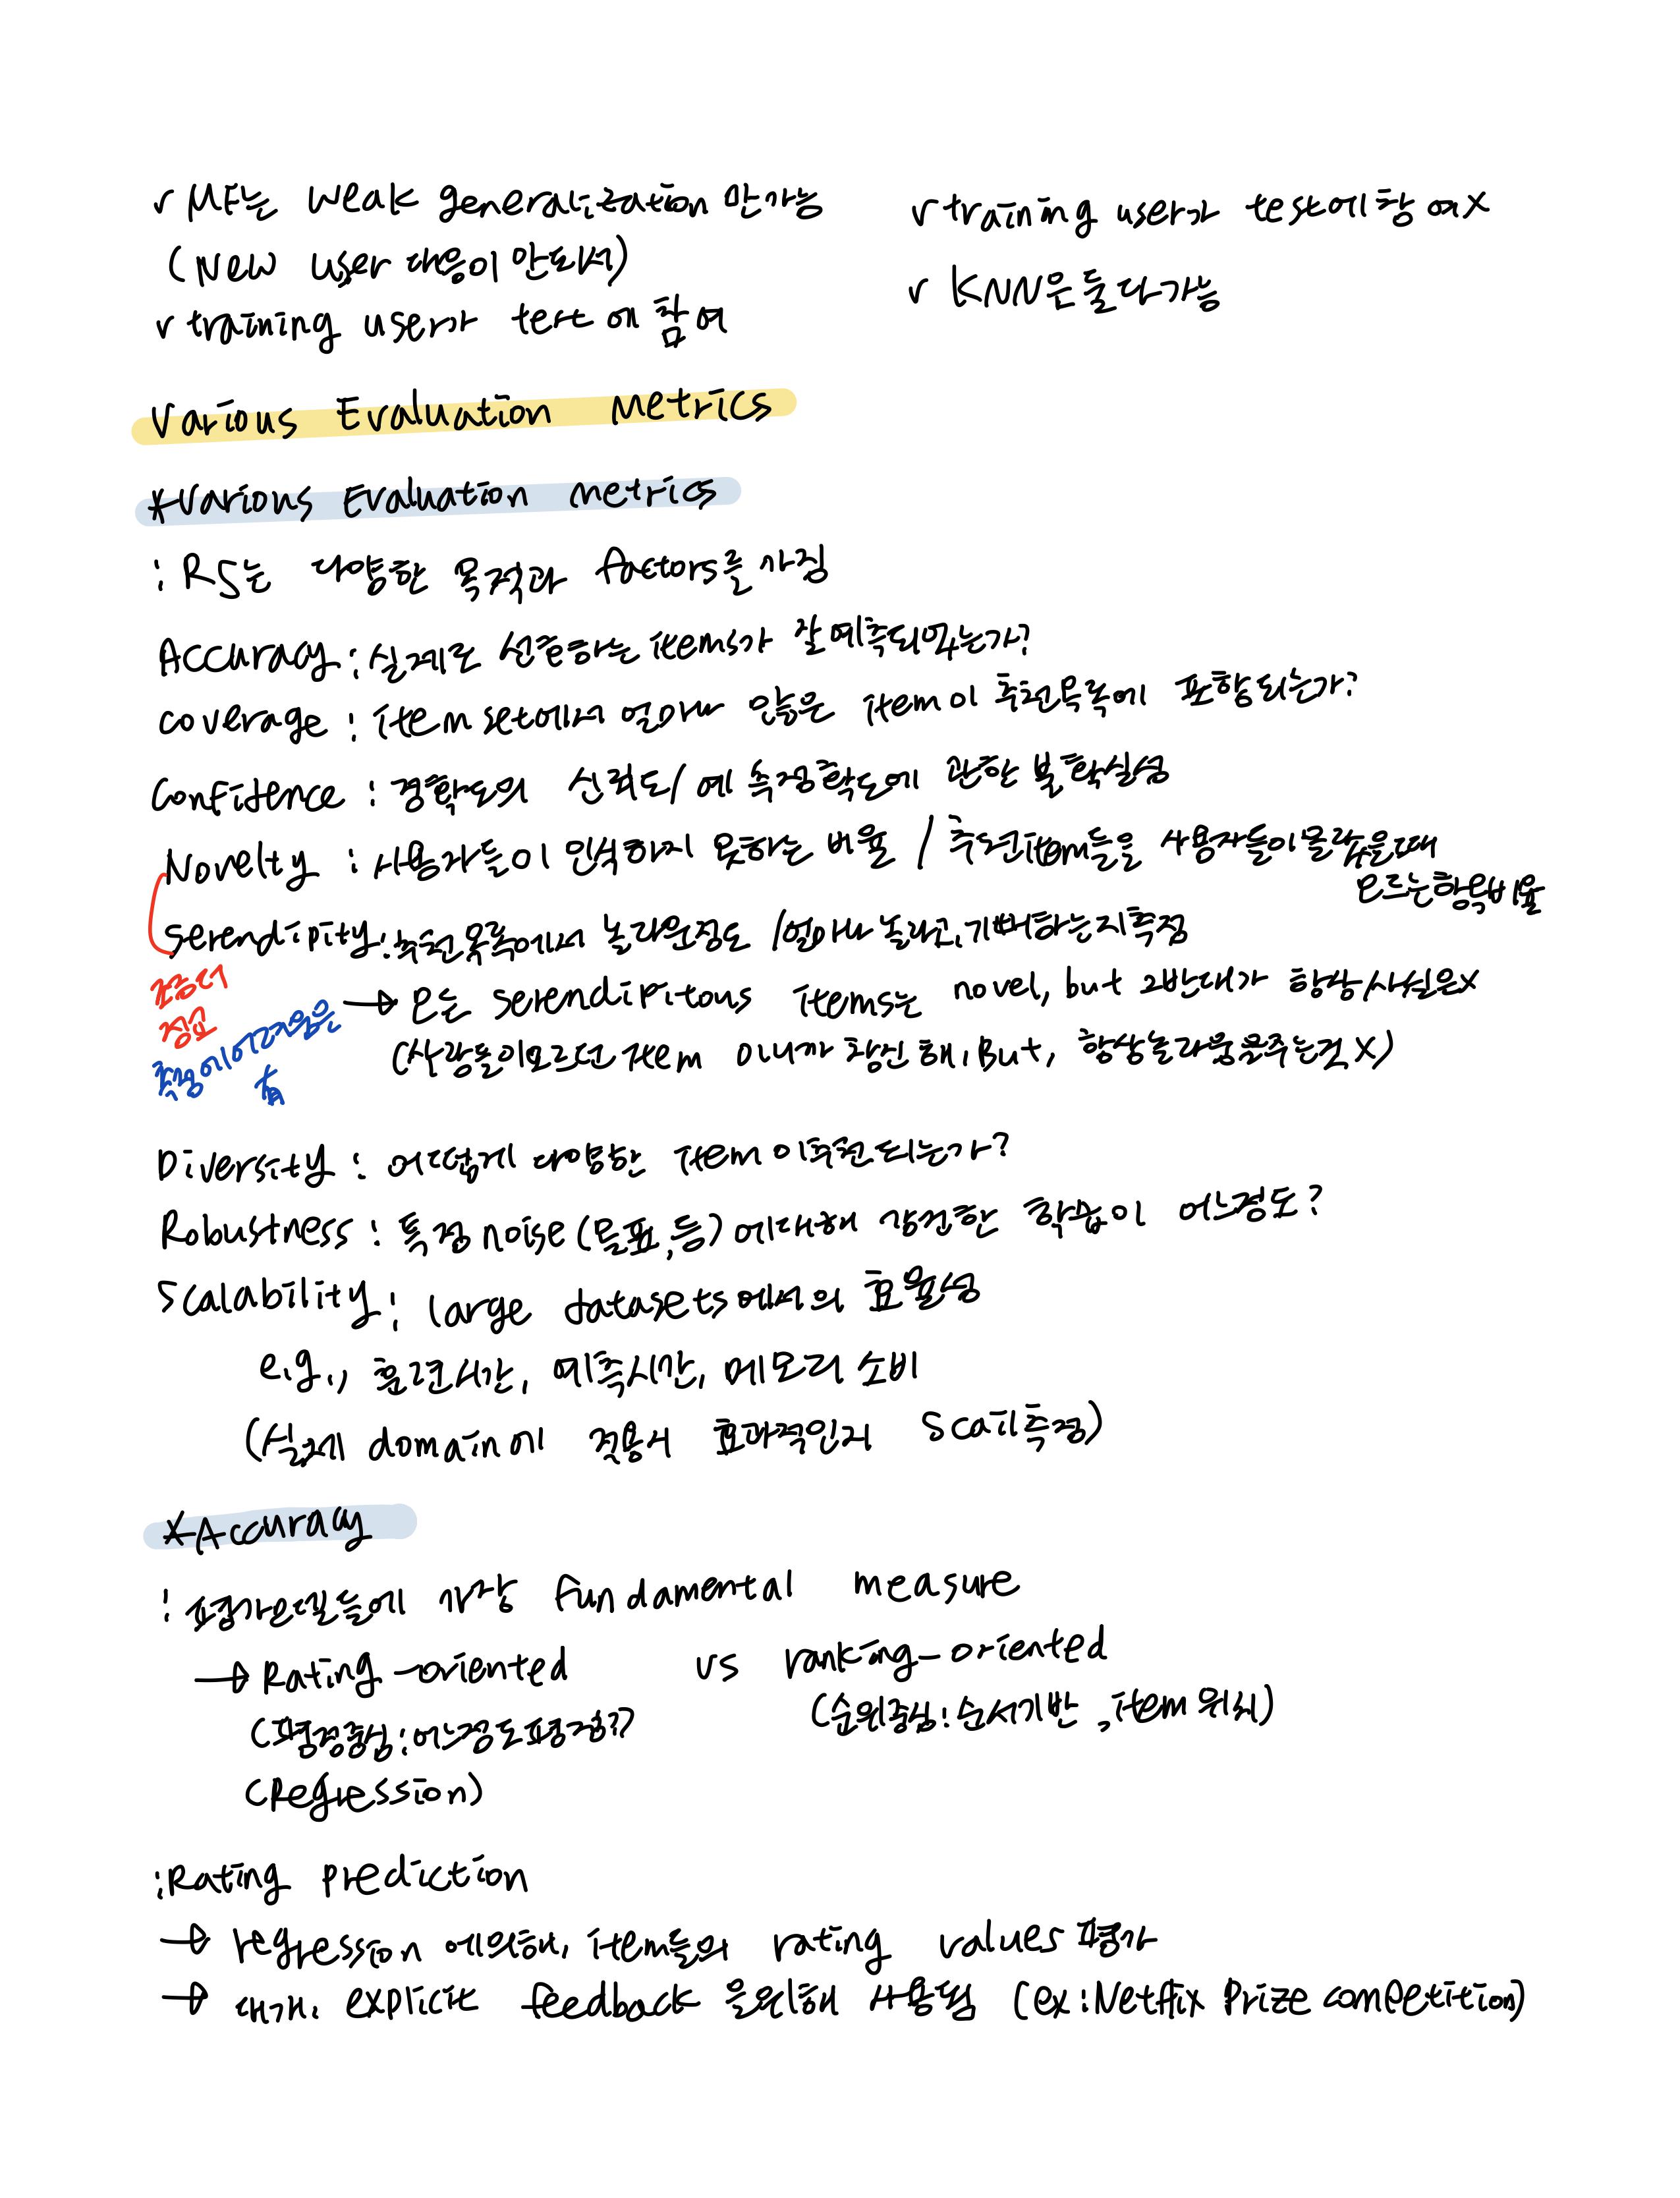 ✓ MF는 weak generalization 만가능
(New user 대응이 안되서)
✓ training user가 test에 참여
✓ training user가 test에 참여X
✓ KNN은 둘다가능
Various Evaluation Metrics
*Various Evaluation metrics
: RS는 다양한 목적과 factors를 가짐
Accuracy : 실제로 선호하는 items가 잘 예측되었는가?
coverage : item set에서 얼마나 많은 item이 추천목록에 포함되는가?
Confidence : 정확도의 신뢰도/예측정확도에 관한 불확실성
Novelty : 사용자들이 인식하지 못하는 비율 / 추천item들을 사용자들이 몰랐을때
모르는항목비율
Serendipity : 추천목록에서 놀라운정도 /얼마나 놀라고, 기뻐하는지측정
조금더
중요
측정에어려움은
有
→ 모든 serendipitous items는 novel, but 그반대가 항상사실은X
(사람들이모르던 item 이니까 참신해, But, 항상놀라움을주는것 X)
Diversity : 어떻게 다양한 item이추천되는가?
Robustness : 특정 noise(물표,등)에대해 강건한 학습이 어느정도?
Scalability : large datasets에서의 효율성
e.g., 훈련시간, 예측시간, 메모리 소비
(실제 domain에 적용시 효과적인지 Scail측정)
*Accuracy
: 평가모델들에 가장 fundamental measure
→ Rating-oriented vs ranking-oriented
(평점중심:어느정도평점??) (순위중심:순서기반, item 위치)
(Regression)
:Rating prediction
→ regression 에의해, item들의 rating values 평가
→ 대개 explicit feedback 을위해 사용됨 (ex:Netflix Prize competition)